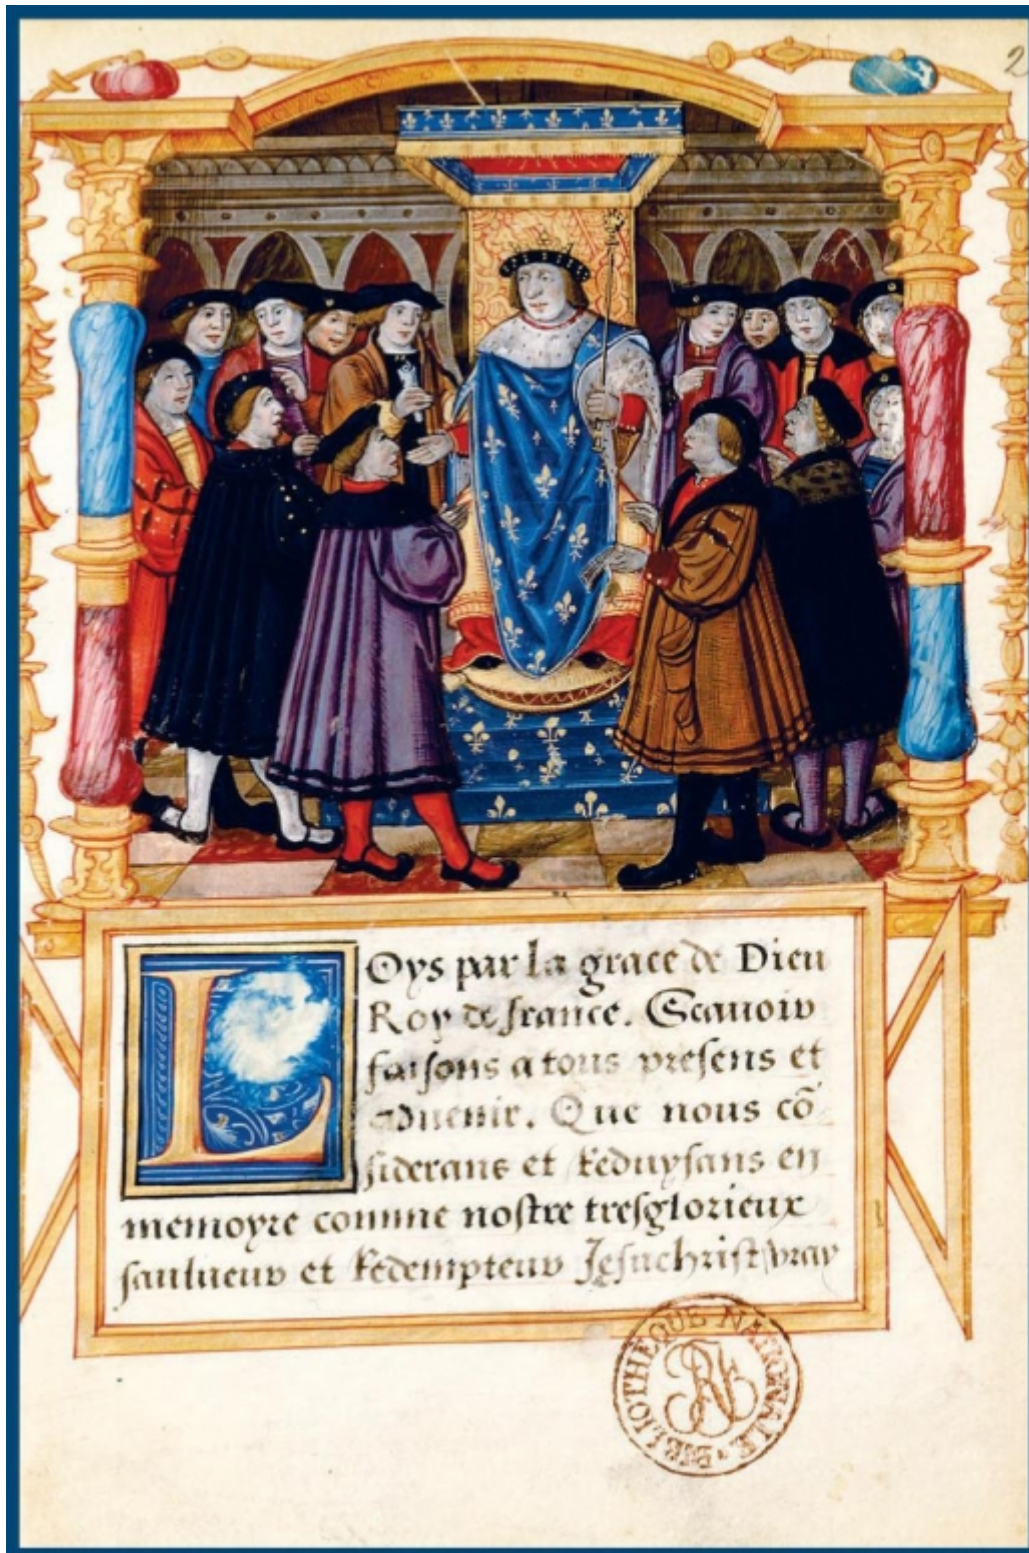 2
LOys par la grace de Dieu
Roy de france. Scauoir
faisons a tous presens et
aduenir. Que nous cō
siderans et Reduysans en
memoyre comme nostre tresglorieux
saulueur et Redempteur Jesuchrist vray
BIBLIOTHEQUE NATIONALE
BN